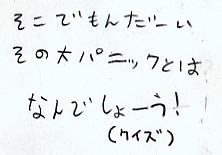 そこでもんだーい
その大パニックとは
なんでしょーう!
(クイズ)